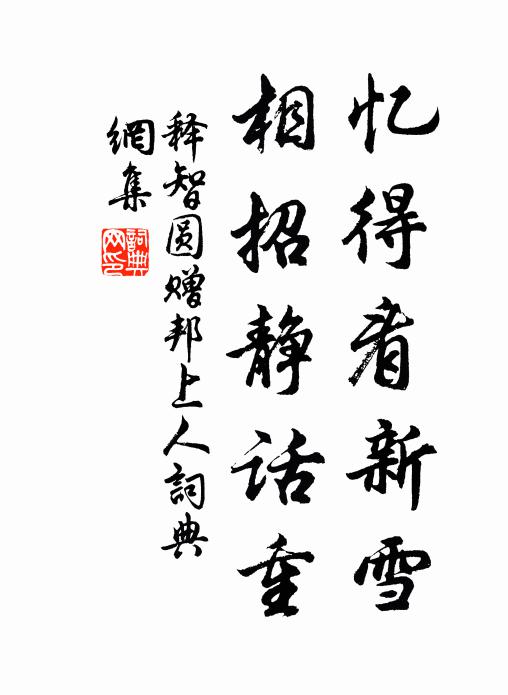 忆得看新雪
相招静话重
释智圆赠邦上人詞典
網集
詞典網印